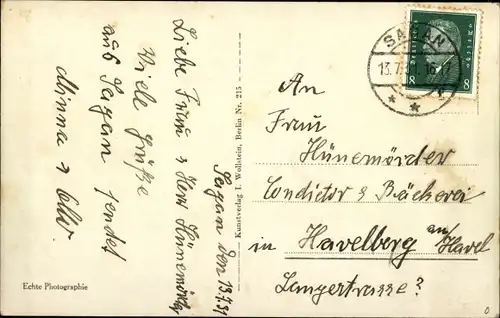 Sagan den 13.7.31
Liebe Frau & Herr Hünemörder
Viele Grüße
aus Sagan sendet
Minna &
Echte Photographie
Kunstverlag J. Wollstein, Berlin Nr. 215
SAGAN
13.7.31 16-17
Deutsches Reich
8 8
An
Frau
Hünemörder
Conditor & Bäckerei
in Havelberg an/Havel
Langerstrasse?